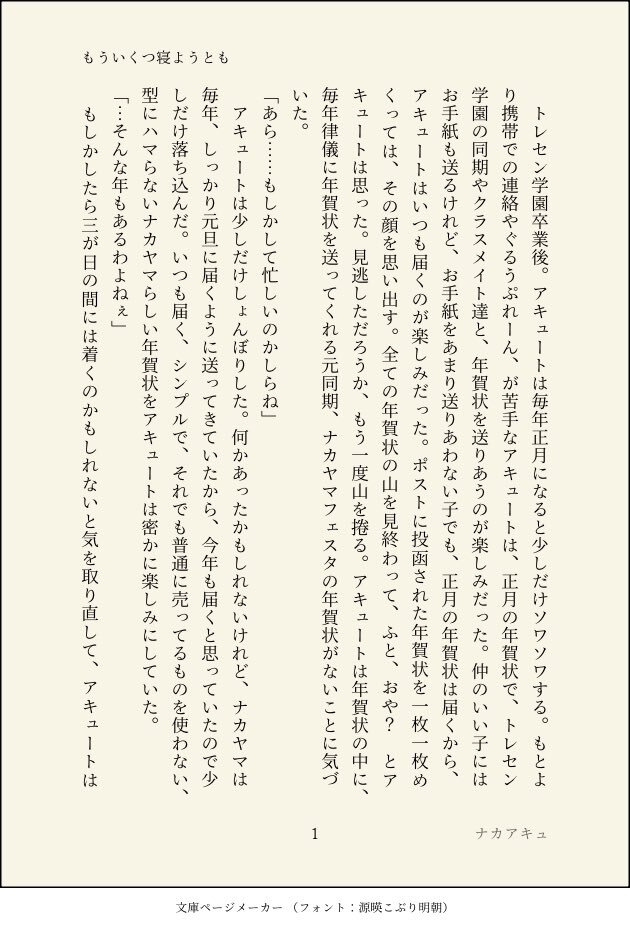 もういくつ寝ようとも
　トレセン学園卒業後。アキュートは毎年正月になると少しだけソワソワする。もとよ
り携帯での連絡やぐるうぷれーん、が苦手なアキュートは、正月の年賀状で、トレセン
学園の同期やクラスメイト達と、年賀状を送りあうのが楽しみだった。仲のいい子には
お手紙も送るけれど、お手紙をあまり送りあわない子でも、正月の年賀状は届くから、
アキュートはいつも届くのが楽しみだった。ポストに投函された年賀状を一枚一枚め
くっては、その顔を思い出す。全ての年賀状の山を見終わって、ふと、おや？　とア
キュートは思った。見逃しただろうか、もう一度山を捲る。アキュートは年賀状の中に、
毎年律儀に年賀状を送ってくれる元同期、ナカヤマフェスタの年賀状がないことに気づ
いた。
「あら……もしかして忙しいのかしらね」
　アキュートは少しだけしょんぼりした。何かあったかもしれないけれど、ナカヤマは
毎年、しっかり元旦に届くように送ってきていたから、今年も届くと思っていたので少
しだけ落ち込んだ。いつも届く、シンプルで、それでも普通に売ってるものを使わない、
型にハマらないナカヤマらしい年賀状をアキュートは密かに楽しみにしていた。
「…そんな年もあるわよねぇ」
　もしかしたら三が日の間には着くのかもしれないと気を取り直して、アキュートは
1
ナカアキュ
文庫ページメーカー （フォント：源暎こぶり明朝）